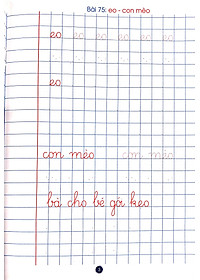 Bài 75: eo - con mèo
eo eo eo eo eo eo eo
eo
con mèo con mèo
bà cho bé gói kẹo
2